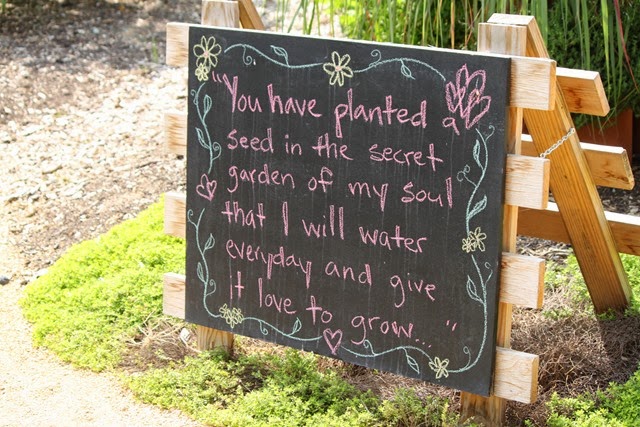 "You have planted a
seed in the secret
garden of my soul
that I will water
everyday and give
it love to grow... "